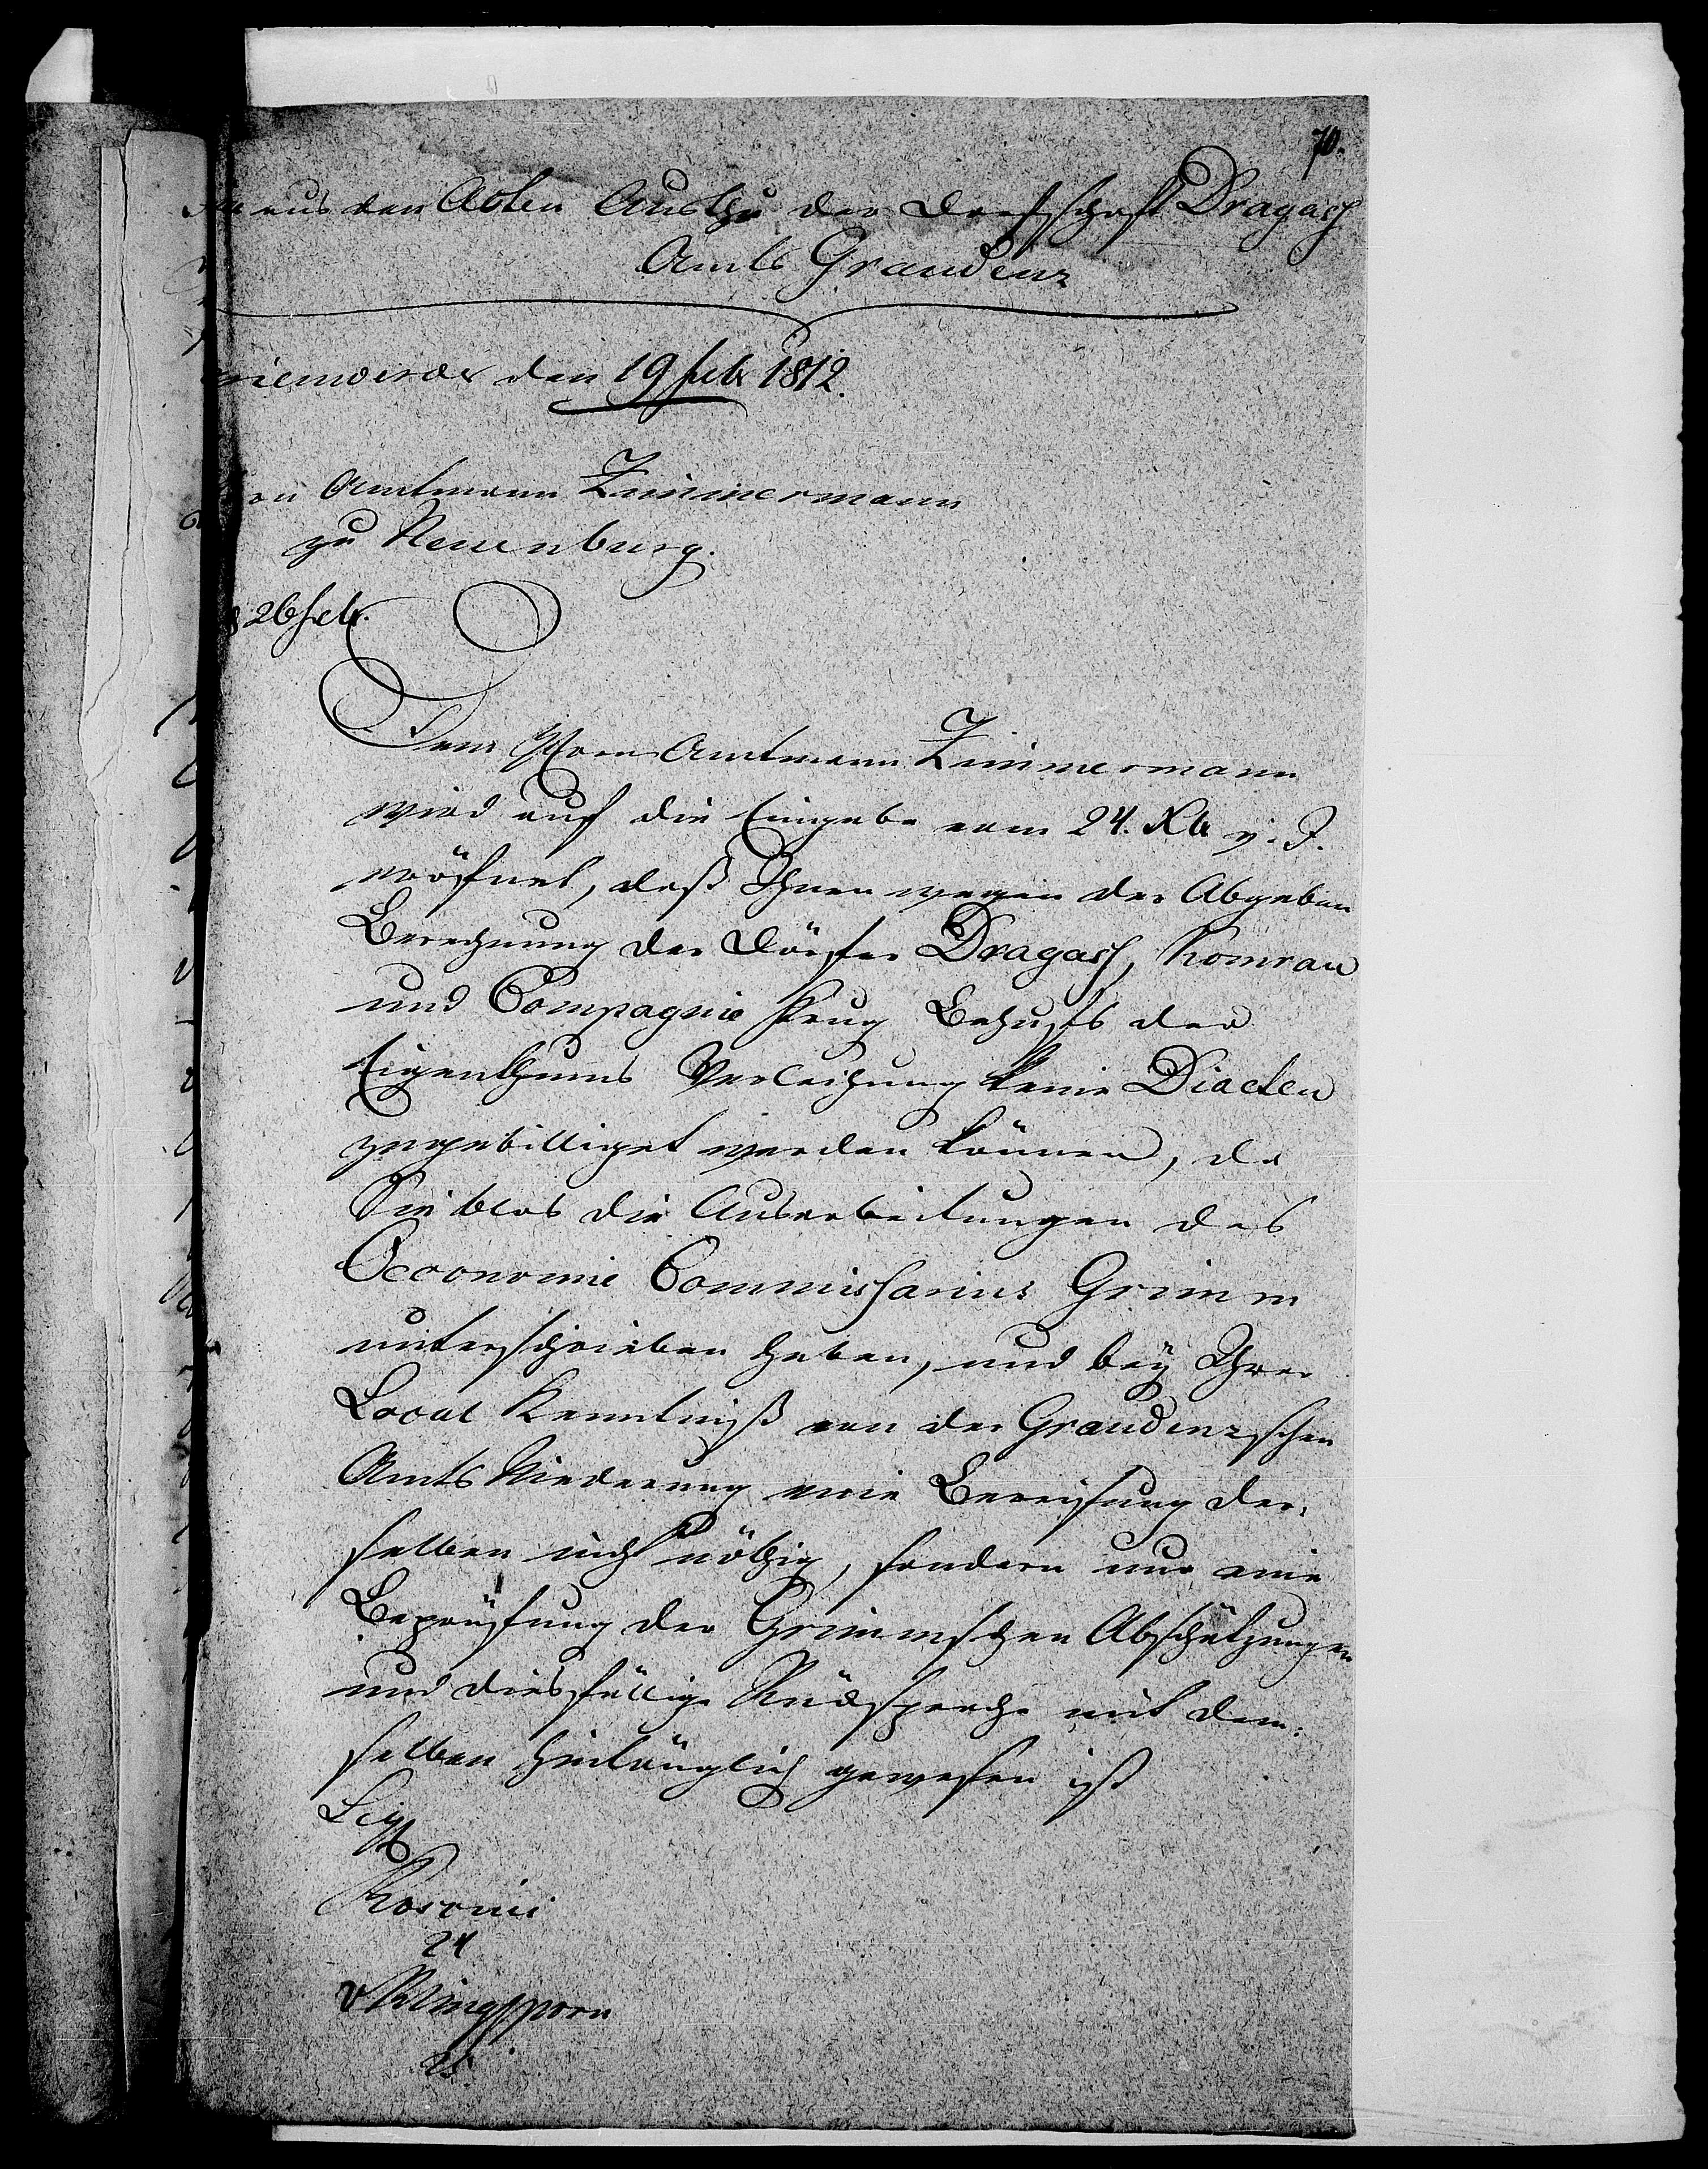 70.
aus den Akten Austhu der Dorfschaft Dragass
Amts Graudenz
rienwerder den 19 febr 1812.
Amtmann Zimmermann
zu Neuenburg.
26 febr.
Dem Herrn Amtmann Zimmermann
wird auf die Eingabe vom 24. Xbr v. J.
eröfnet, daß Ihnen wegen der Abgaben
Berechnung der Dörfer Dragass, Komrau
und Compagnie Krug Behufs der
Eigenthums Verleihung keine Diaeten
zugebilliget werden können, da
Sie blos die Ausarbeitungen des
Oeconomie Commissarius Grimm
unterschrieben haben, und bey Ihrer
Local Kenntniß von der Graudenzschen
Amts Niederung eine Bereisung der¬
selben nicht nöthig, sondern nur eine
Beprüfung der Grimmschen Abschätzungen
und diesfällige Rücksprache mit dem¬
selben hinlänglich gewesen ist
24
v Klingsporn
25